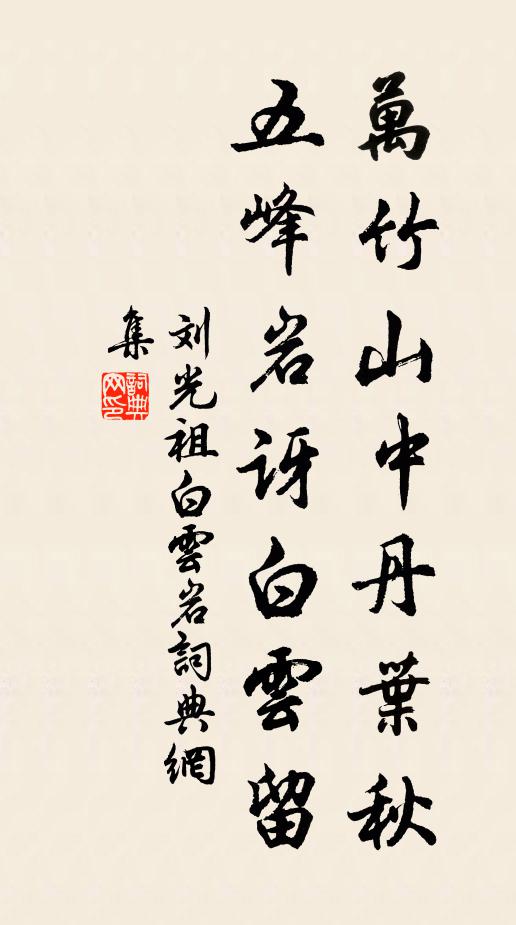 萬竹山中丹葉秋
五峰岩訝白雲留
刘光祖白雲岩詞典網
集
詞典
网印